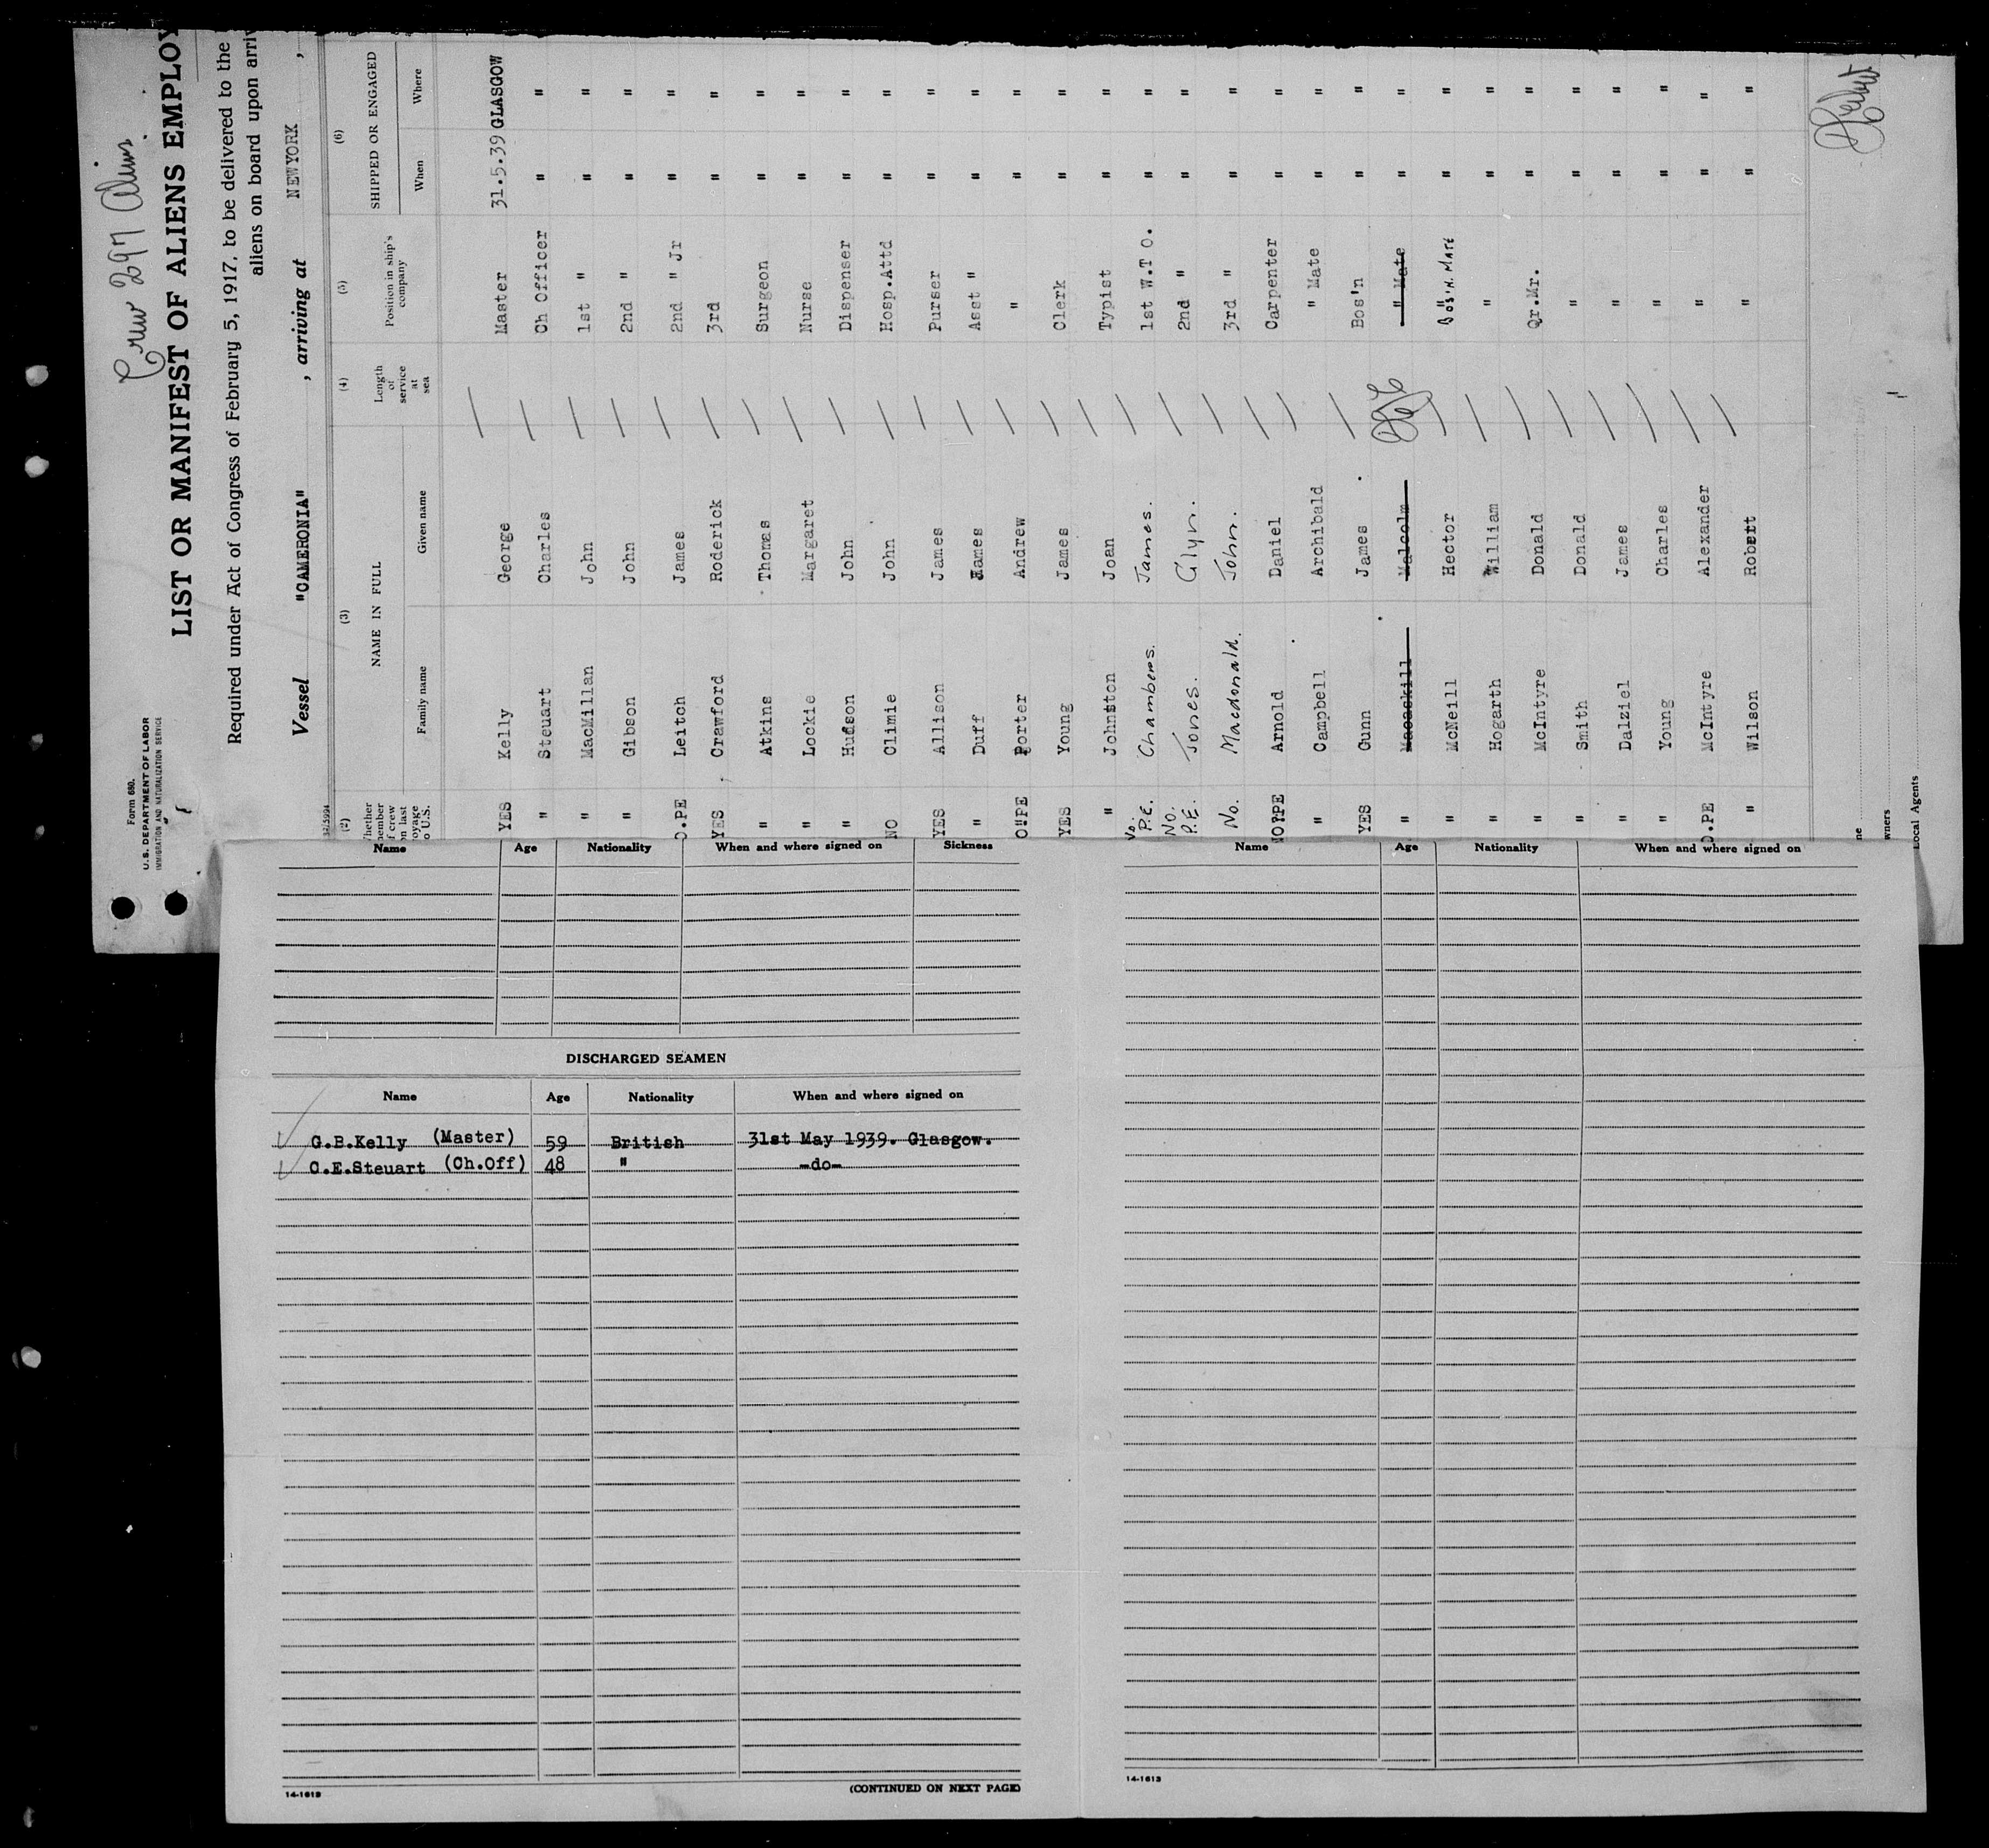 Crew 297 Aliens
Form 680.
U.S. DEPARTMENT OF LABOR
IMMIGRATION AND NATURALIZATION SERVICE
LIST OR MANIFEST OF ALIENS EMPLOY
Required under Act of Congress of February 5, 1917, to be delivered to the
aliens on board upon arriv
Vessel "CAMERONIA" , arriving at NEWYORK ,
(2) (3) (4) (5) (6)
NAME IN FULL SHIPPED OR ENGAGED
hether member f crew on last oyage o U.S. Family name Given name Length of service at sea Position in ship's company When Where
YES Kelly George Master 31.5.39 GLASGOW
" Steuart Charles Ch Officer " "
" MacMillan John 1st " " "
" Gibson John 2nd " " "
O.PE Leitch James 2nd " Jr " "
YES Crawford Roderick 3rd " "
" Atkins Thomas Surgeon " "
" Lockie Margaret Nurse " "
" Hudson John Dispenser " "
NO Climie John Hosp.Attd " "
YES Allison James Purser " "
" Duff James Asst " " "
O.PE Porter Andrew " " "
YES Young James Clerk " "
" Johnston Joan Typist " "
No. P.E. Chambers. James. 1st W.T O. " "
No. P.E. Jones. Glyn. 2nd " " "
No. Macdonald. John. 3rd " " "
NO.PE Arnold Daniel Carpenter " "
" Campbell Archibald " Mate " "
YES Gunn James Bos'n " "
" Macaskill Malcolm " Mate " "
" McNeill Hector Bos'n. Mate " "
" Hogarth William " " "
" McIntyre Donald Qr.Mr. " "
" Smith Donald " " "
" Dalziel James " " "
" Young Charles " " "
O.PE McIntyre Alexander " " "
" Wilson Robert " " "
ne
wners
Local Agents
Name Age Nationality When and where signed on Sickness
DISCHARGED SEAMEN
Name Age Nationality When and where signed on
G.B.Kelly (Master) 59 British 31st May 1939. Glasgow.
C.E.Steuart (Ch.Off) 48 " -do-
14-1613
(CONTINUED ON NEXT PAGE)
Name Age Nationality When and where signed on
14-1613